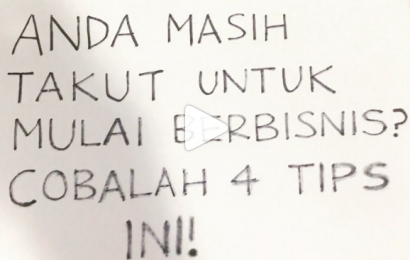 ANDA MASIH
TAKUT UNTUK
MULAI BERBISNIS?
COBALAH 4 TIPS
INI!